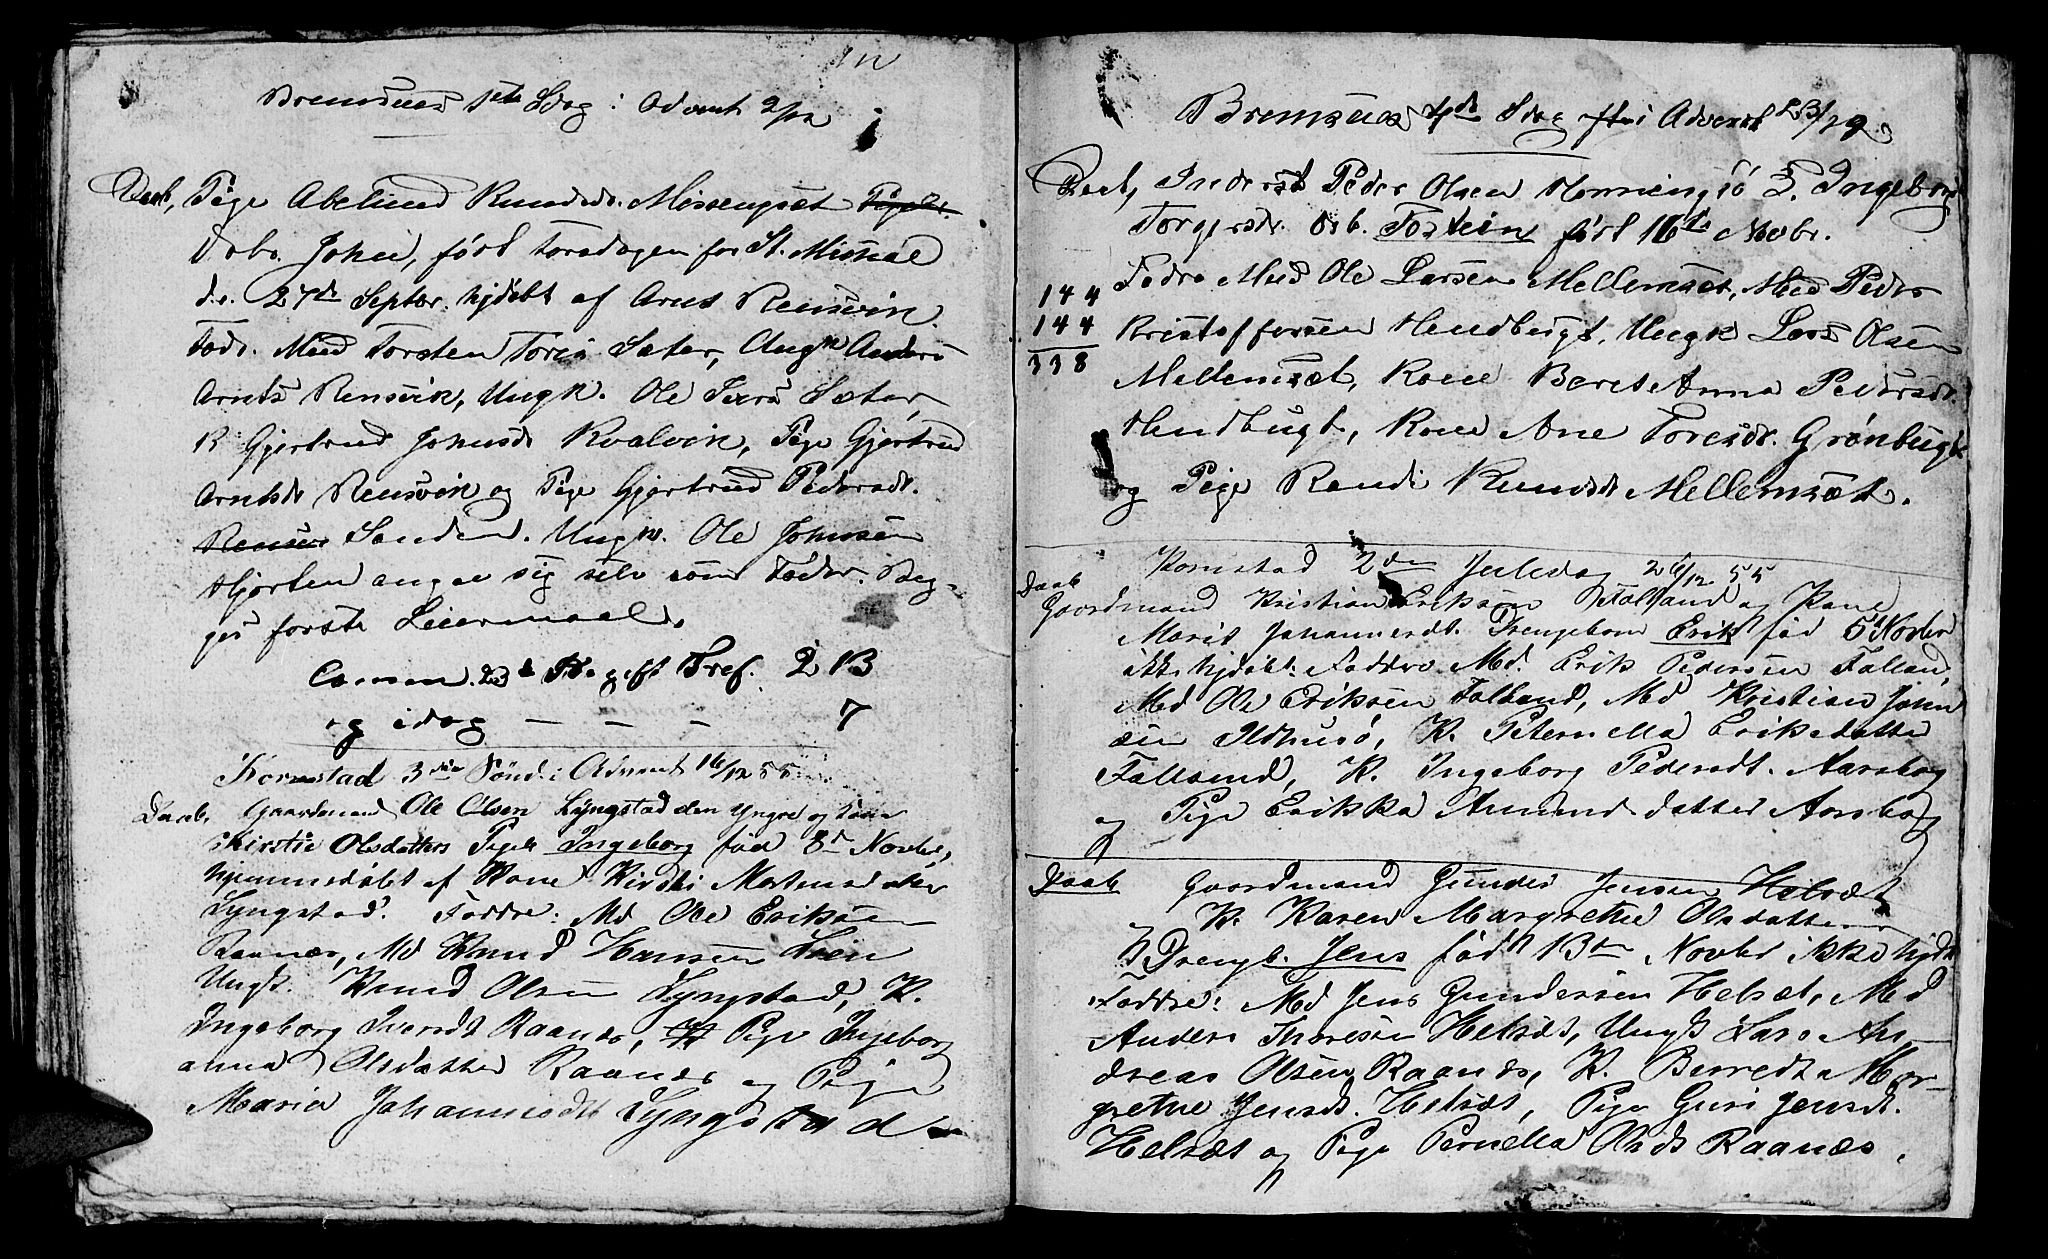 Bremsnes 1ste Sdag i Advent 2/12
Daab, Pige Abelund Knudsdr. Missengsæt Pigeb.
Drbn. John, født Torsdagen før St. Michael
d.e. 27de Septbr. hjdøbt af Arnt Rensvik.
Fadr. Mænd Torsten Sæter, Ungk Anders
Arnts Rensvik, Ungk. Ole Sæter,
K Gjertrud Johnsdr Kvalvik, Pige Gjertrud
Arntsdr Rensvik og Pige Gjertrud Pedersdr.
Rensvi Sanden. Ungk. Ole Johnsen
Hjorten angav sig selv som Fader. Beg-
ges første Leiermaal.
Commun. 23de S. Pref. 2 B
og idag — — — 7
Kornstad 3die Sønd. i Advent 16/12 55
Daab, Gaardmand Ole Olsen Lyngstad den Yngre og Kone
Kirstie Olsdatters Pigeb Ingeborg fød 8de Novbr,
hjemmedøbt af Kone Kirsti Mortensdatter
Lyngstad. Faddre: Md Ole Eriksen
Raanæs, Md Knud Hansen Lien
Ungk. Knud Olsen Lyngstad, K.
Ingeborg Iversdt Raanæs, K Pige Ingeborg
anna Olsdatter Raanæs og Pige
Maria Johannesdt Lyngstad
Bremsnes 4de Sdag i Advent 23/12
Daab, Inderst Peder Olsen Henningsø & Ingeborg
Torgersdr. Drb. Torstein født 16de Novbr.
Fadre Mænd Ole Larsen Mellemsæt, Mænd Peder
144
Kristoffersen Hendbugt, Ungk Lars Olsen
144
338
Mellemsæt, Kone Beret Anna Pedersdr
Hendbugt, Kone Ane Toresdr. Grønbugt
og Pige Randi Knudsdr Mellemsæt.
Kornstad 2den Juledag 26/12 55
Daab Gaardmand Kristian Eriksen Falland og Kone
Marit Johannesdt. Drengebarn Erik fød 5te Novbr
ikke hjdøbt. Faddre Md. Erik Pedersen Falland,
Md Ole Eriksen Falland, Md Kristian John
sen Ildhusø, K. Peternella Eriksdatter
Falland, K. Ingeborg Pedersdt. Aarsbog
og Pige Erikka Amundsdatter Aarsbog
Daab Gaardmand Gunder Jensen Helsæt
K. Karen Margrethe Olsdatters
Drengb. Jens født 13de Novbr ikke hjdt
Faddre: Md Jens Gundersen Helsæt, Md
Anders Thoresen Helsæt, Ungk Lars An-
dreas Olsen Raanæs, K. Beret Mar-
grethe Jensdt. Helsæt, Pige Guri Jensdt.
Helsæt og Pige Pernella Olsdt Raanæs.